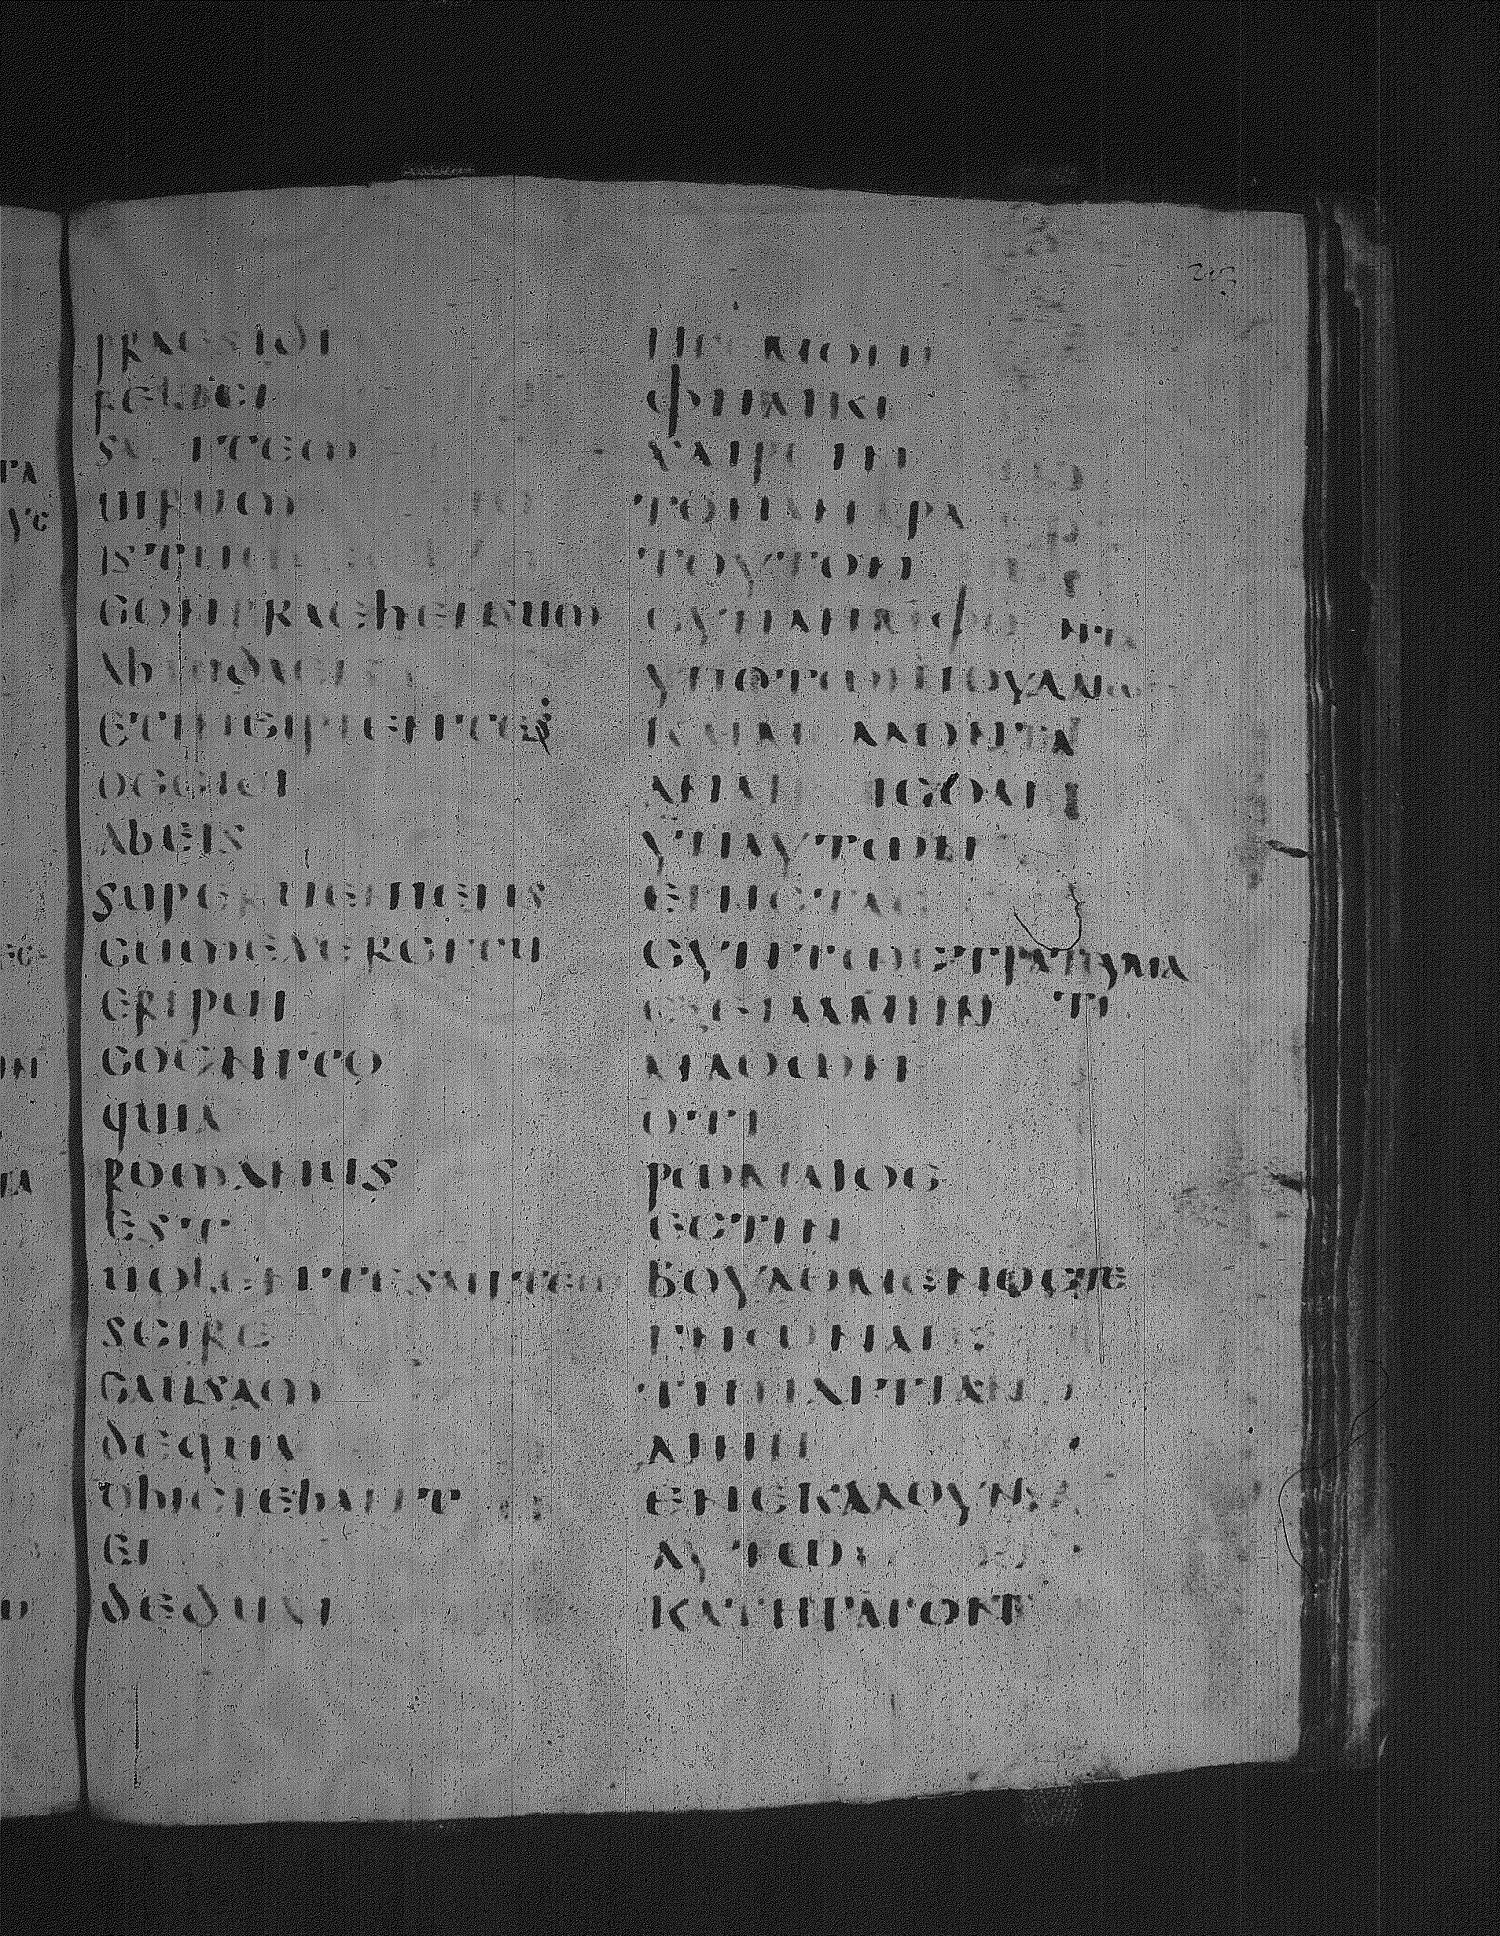 praesidi
felici
salutem
uirum
istum
conpraehensum
ab iudaeis
et incipientte
occidi
ab eis
superueniens
cum exercitu
eripui
cognito
quia
romanus
est
uolens autem
scire
causam
de qua
obiciebant
ei
deduxi
ηγεμονι
φηλικι
χαιρειν
τον ανδρα
τουτον
συνλημφθεντα
υπο των ιουδαιων
και μελλοντα
αναιρισθαι
υπ αυτων
επιστας
συν τω στρατευμα τι
εξειλαμην
μαθων
οτι
ρωμαιος
εστιν
βουλομενος δε
γνωναι
την αιτιαν
δι ην
ενεκαλουν
αυτω
κατηγαγον